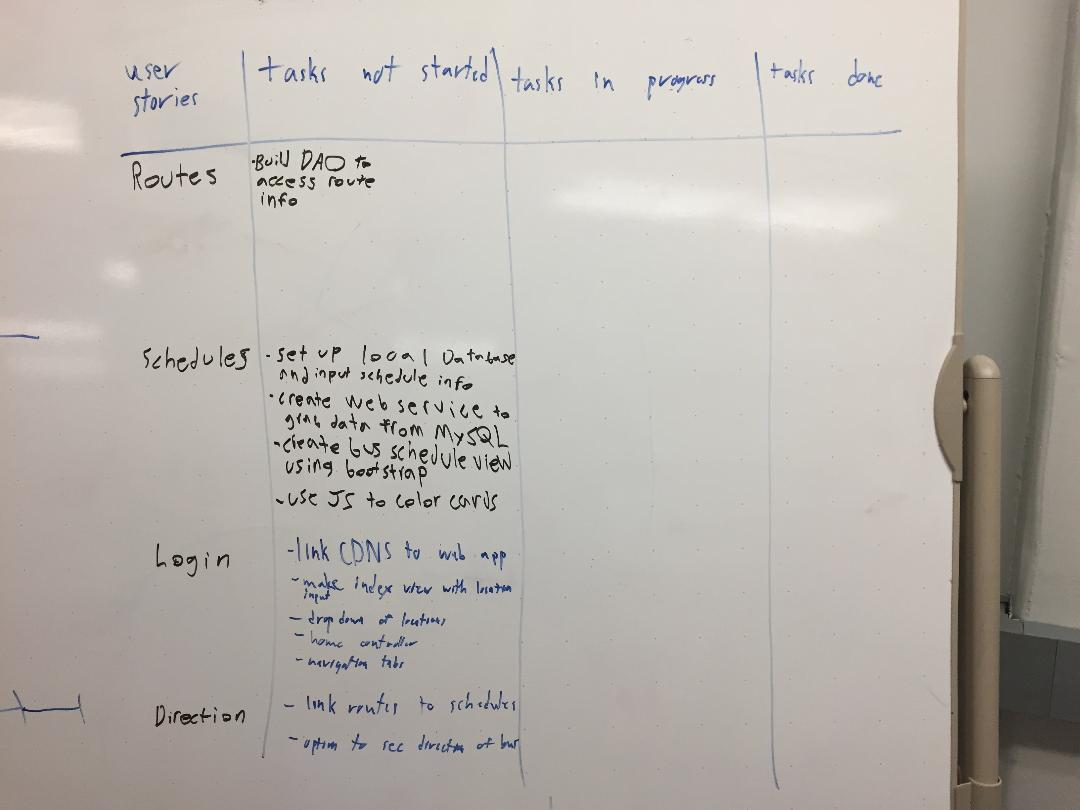 user stories
tasks not started
tasks in progress
tasks done
Routes
·Build DAO to
access route
info
Schedules
·set up local Database
and input schedule info
·create web service to
grab data from MySQL
-create bus schedule view
using bootstrap
-use JS to color cards
Login
-link CDNS to web app
-make index view with location
input
-drop down of locations
-home controller
-navigation tabs
Direction
-link routes to schedules
-option to see direction of bus